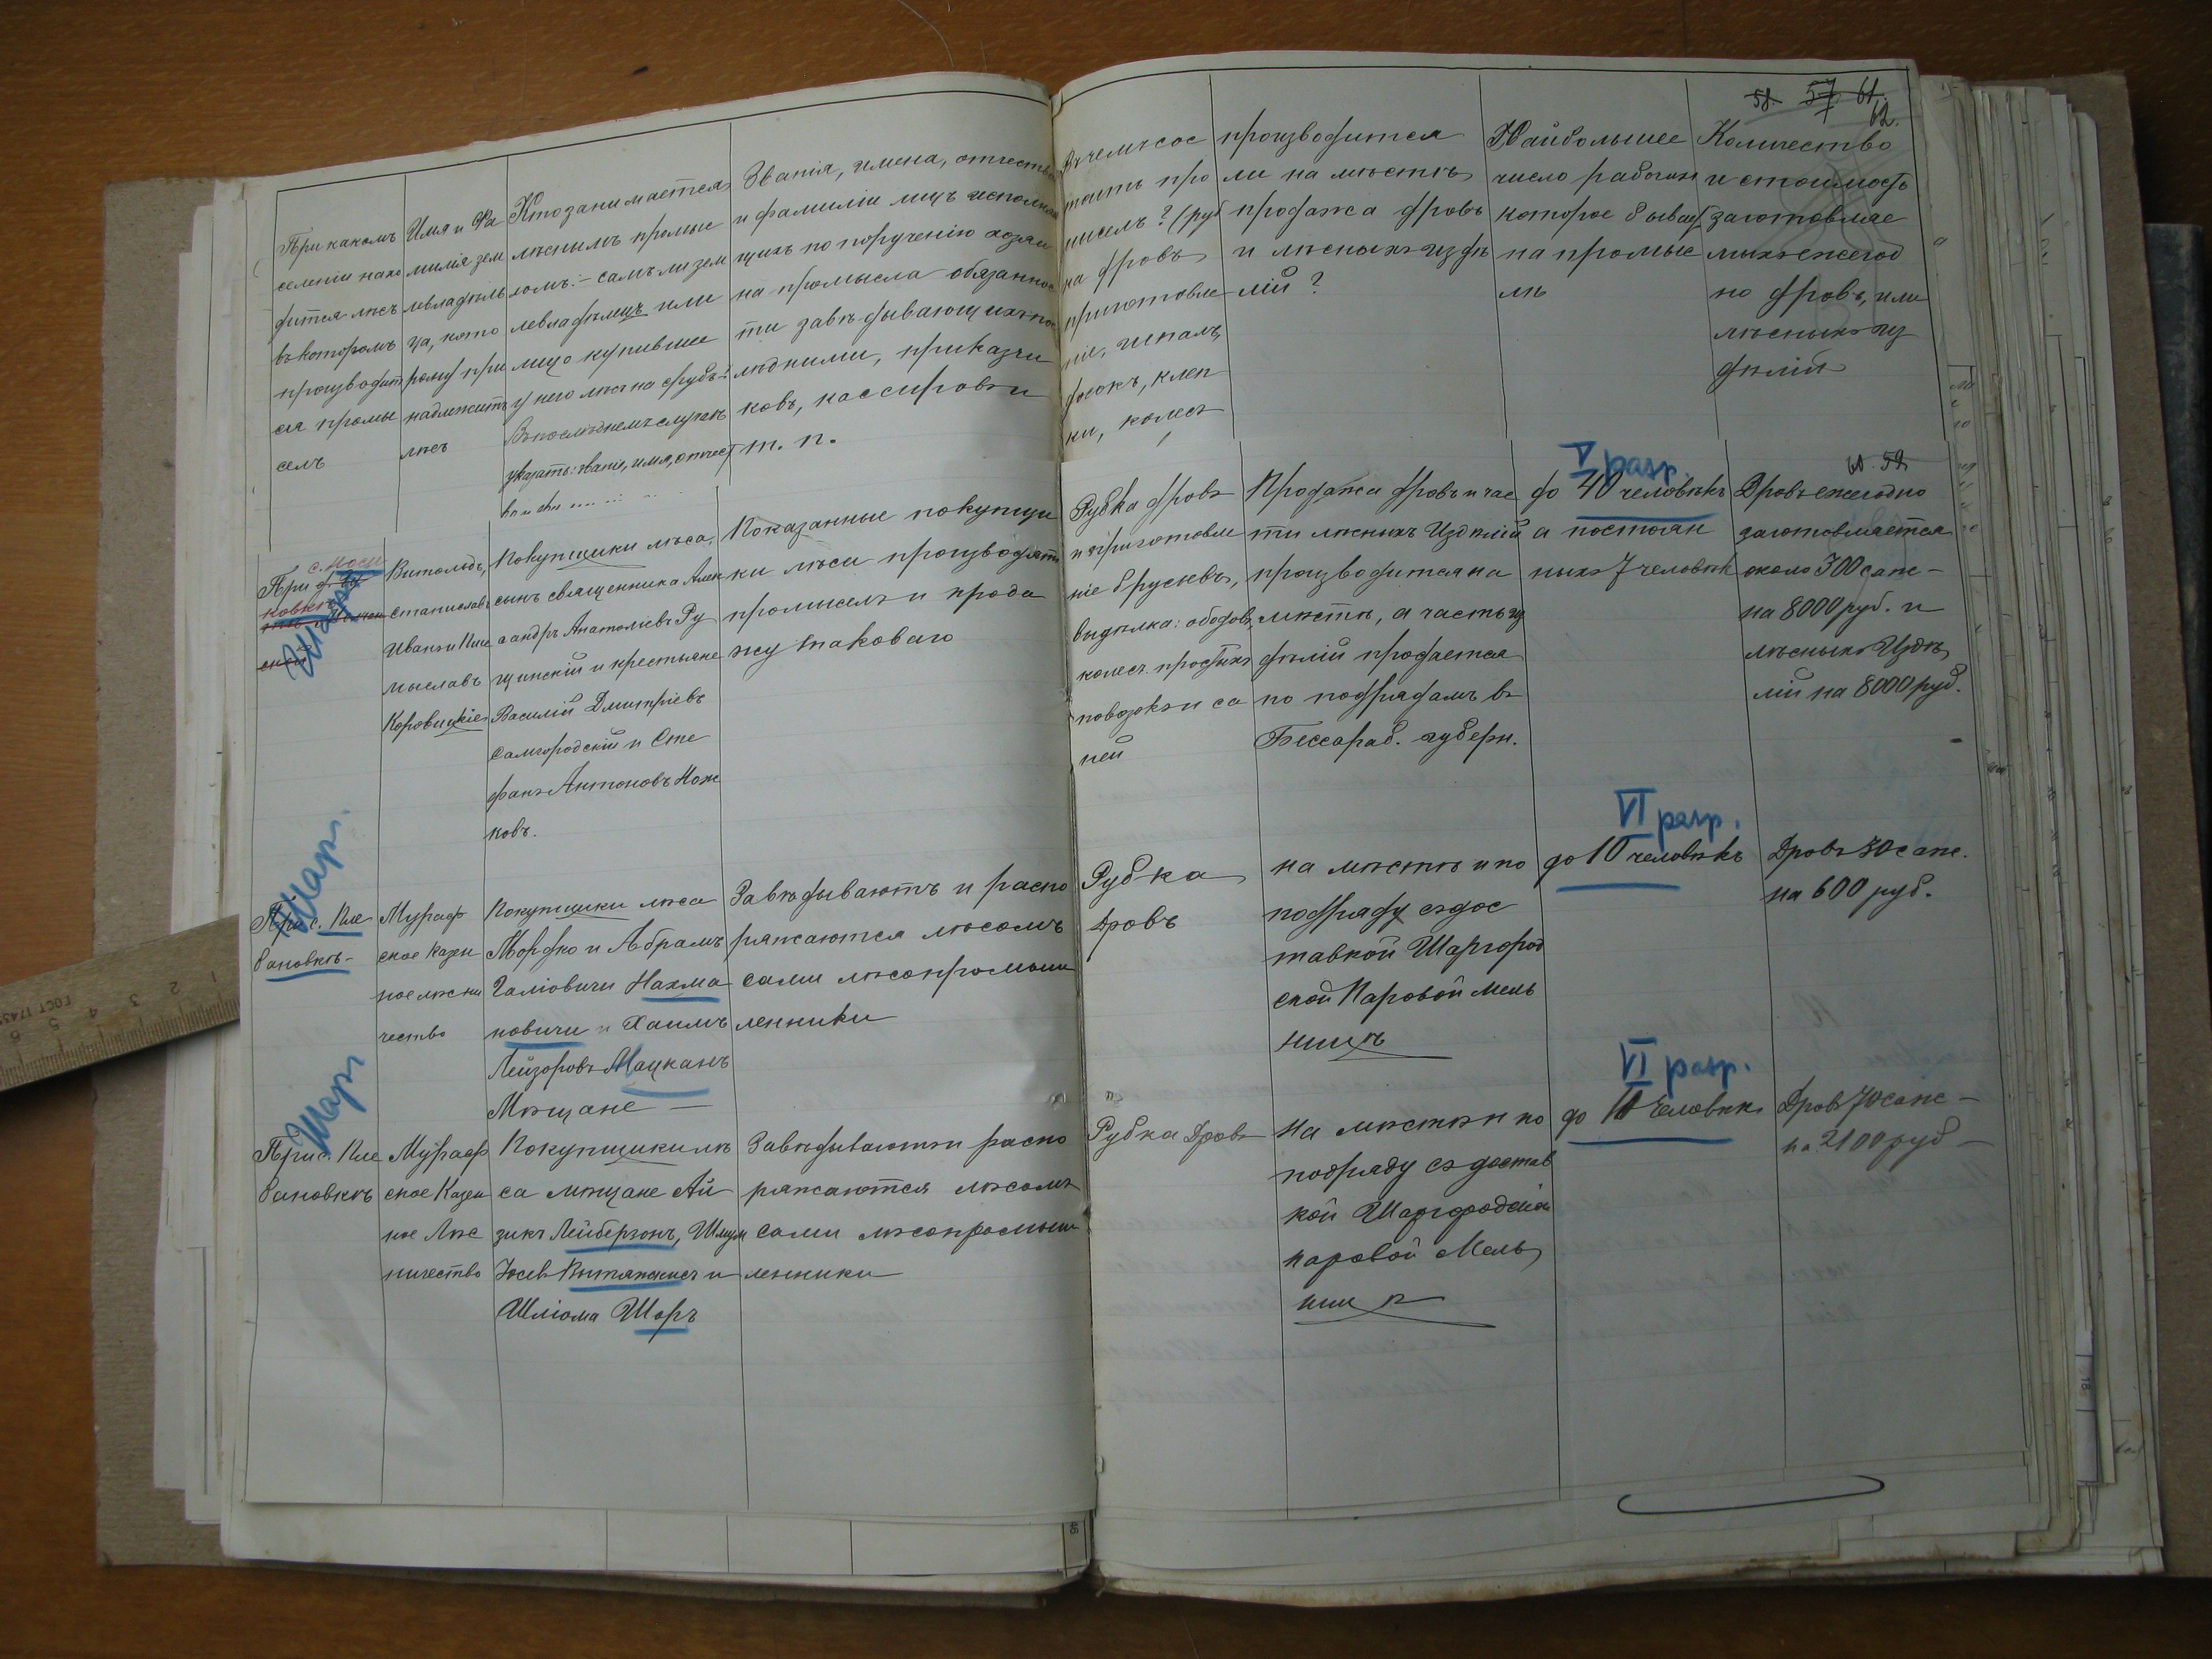 58. 57 61.
62.
При какомъ
селеніи нахо
дится лѣсъ
въ которомъ
производит
ся промы
селъ
Имя и Фа
милія зем
левладѣль
ца, кото
рому при
надлежитъ
лѣсъ
Кто занимается
лѣснымъ промыс
ломъ:– самъ ли зем
левладѣлецъ или
лицо купившее
у него лѣсъ на срубъ?
Въ послѣднемъ случаѣ
указать: званіе, имя, отчест
Званія, имена, отчества
и фамиліи лицъ исполняю
щихъ по порученію хозяи
на промысла обязаннос
ти завѣдывающихъ
людными, приказчи
ковъ, кассировъ и
т. п.
Въ чемъ сос
тоитъ про
мыселъ? (руб
ка дровъ
приготовле
ніе, шпалъ,
досокъ, клеп
ки, колесъ
производится
ли на мѣстѣ
продажа дровъ
и лѣсныхъ издѣ
лій?
Наибольшее
число рабочихъ
которое бываетъ
на промыс
лѣ
Количество
и стоимость
заготовляе
мыхъ ежегод
но дровъ, или
лѣсныхъ из
дѣлій
61. 59
При
с.
ковкѣ
Шар
Витольдъ,
Станиславъ
Иванъ и Пше
мыславъ
Коровицкіе
Покупщики лѣса,
сынъ священника Алек
сандръ Анатоліевъ Ру
щинскій и крестьяне
Василій Дмитріевъ
Самгородскій и Сте
фанъ Антоновъ Нож
ковъ.
Показанные покупщи
ки лѣса производятъ
промыселъ и прода
жу таковаго
Рубка дровъ
и приготовле
ніе брусьевъ,
выдѣлка: ободовъ,
колесъ простыхъ
повозокъ и са
ней
Продажа дровъ и час
ти лѣсныхъ Издѣлій
производится на
мѣстѣ, а часть из
дѣлій продается
по подрядамъ въ
Бессараб. губерн.
V разр.
до 40 человѣкъ
а постоян
ныхъ 7 человѣкъ
Дровъ ежегодно
заготовляется
около 300 саже–
на 8000 руб. и
лѣсныхъ Издѣ
лій на 8000 руб.
Шарг.
При с. Пле
бановкѣ–
Мураф
ское казен
ное лѣсни
чество
Покупщики лѣса
Мордко и Абрамъ
Галіовичи Нахма
новичи и Хаимъ
Лейзоровъ Мацканъ
Мѣщане –
Завѣдываютъ и распо
ряжаются лѣсомъ
сами лѣсопромыш
ленники
Рубка
Дровъ
на мѣстѣ и по
подряду съ дос
тавкой Шаргород
ской Паровой мель
ницѣ
VI разр.
до 10 человѣкъ
Дровъ 30 саже.
на 600 руб.
Шарг
При с. Пле
бановкѣ
Мураф
ское Казен
ное Лѣс
ничество
Покупщики лѣ
са мѣщане Ай
зикъ Лейберзонъ, Шмул
Іосев Вытянскисъ и
Шліома Шоръ
Завѣдываютъ и распо
ряжаются лѣсомъ
сами лѣсопромыш
ленники
Рубка Дровъ
На мѣстѣ и по
подряду съ достав
кой Шаргородской
паровой Мель
ницѣ
VI разр.
до 10 Человѣкъ
Дровъ 70 саже –
на 2100 руб –
46